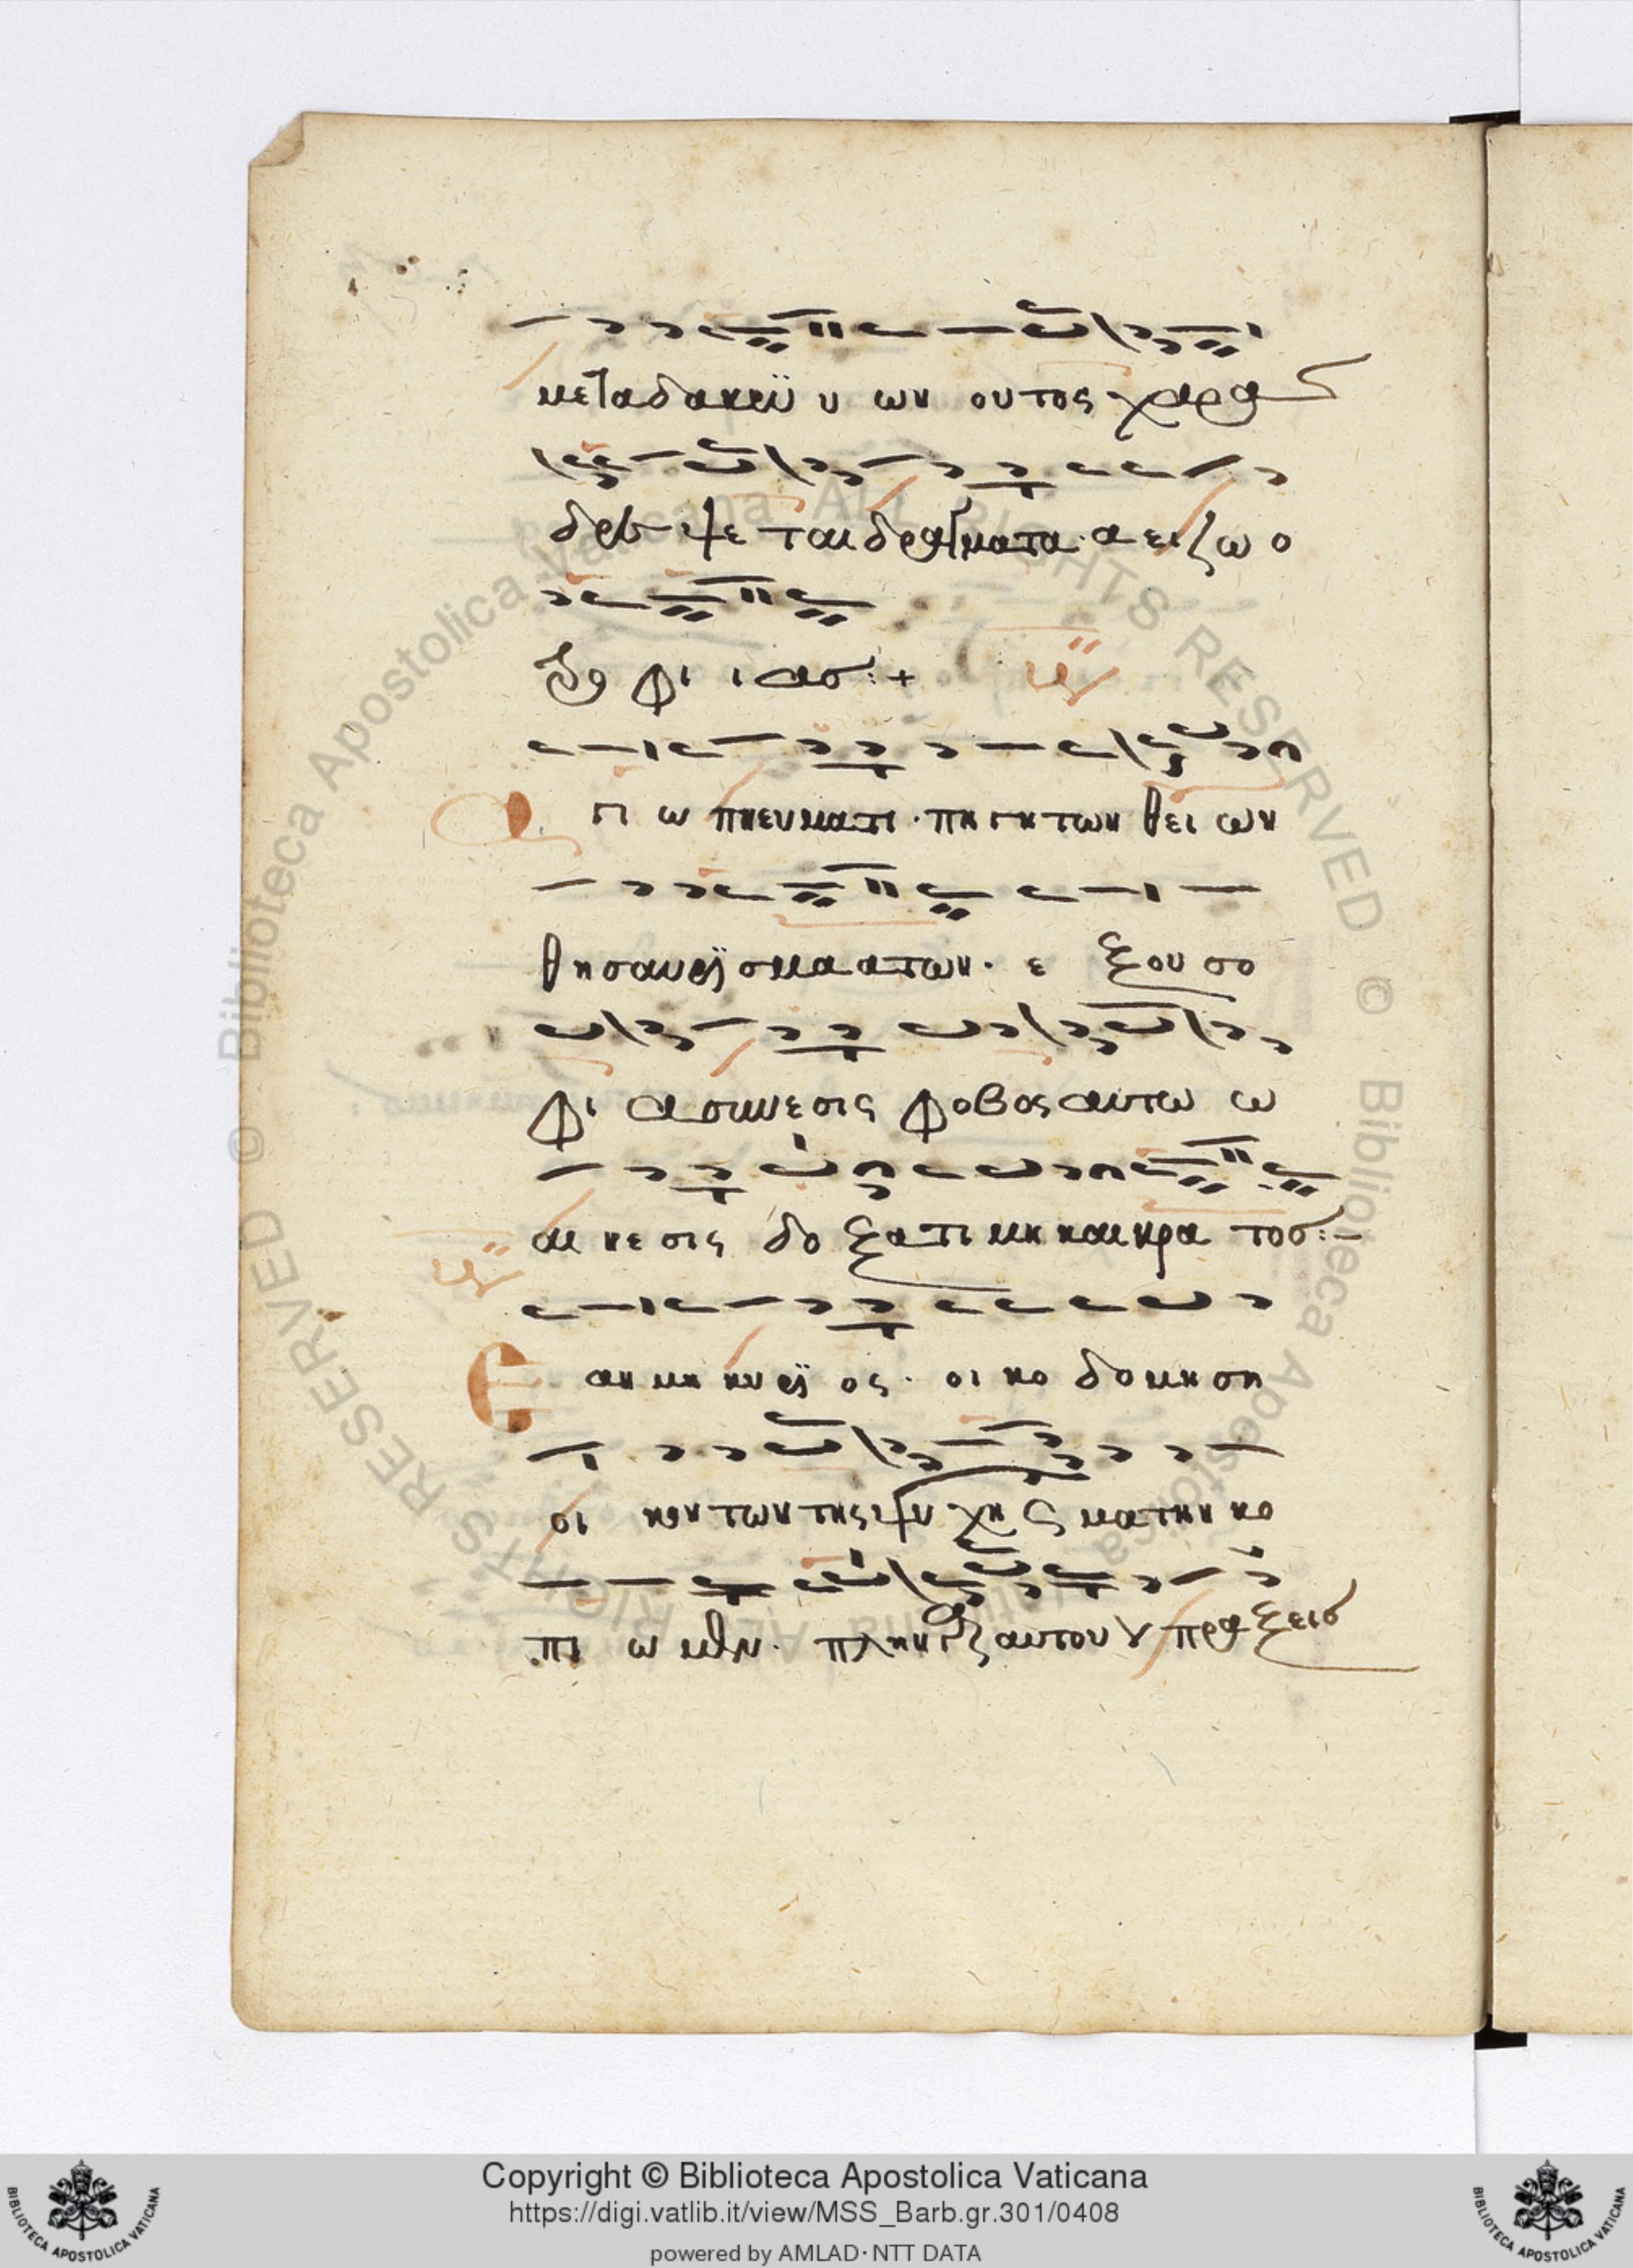 μεταδακρυ υ ων ουτος χαρασ
δρε ψε ται δραγματα· α ει ζω ο
τρο φι ι ασ:+
Α γι ω πνευματι· πη γη των θει ων
θησαυρισμα ατων· ε ξου σο
φι α συνεσις φοβος αυτω ω
αι νε σις δο ξα τι μη και κρα τοσ:-
Ε αν μη κυρι ος· οι κο δο μη ση
οι κον των της ψυ χη ς ματην κο
πι ω μεν· πλην γαρ αυτου ου πραξεισ
© Biblioteca Apostolica Vaticana ALL RIGHTS RESERVED © Biblioteca Apostolica Vaticana ALL RIGHTS RESERVED
Copyright © Biblioteca Apostolica Vaticana
https://digi.vatlib.it/view/MSS_Barb.gr.301/0408
powered by AMLAD·NTT DATA
BIBLIOTECA APOSTOLICA VATICANA
BIBLIOTECA APOSTOLICA VATICANA